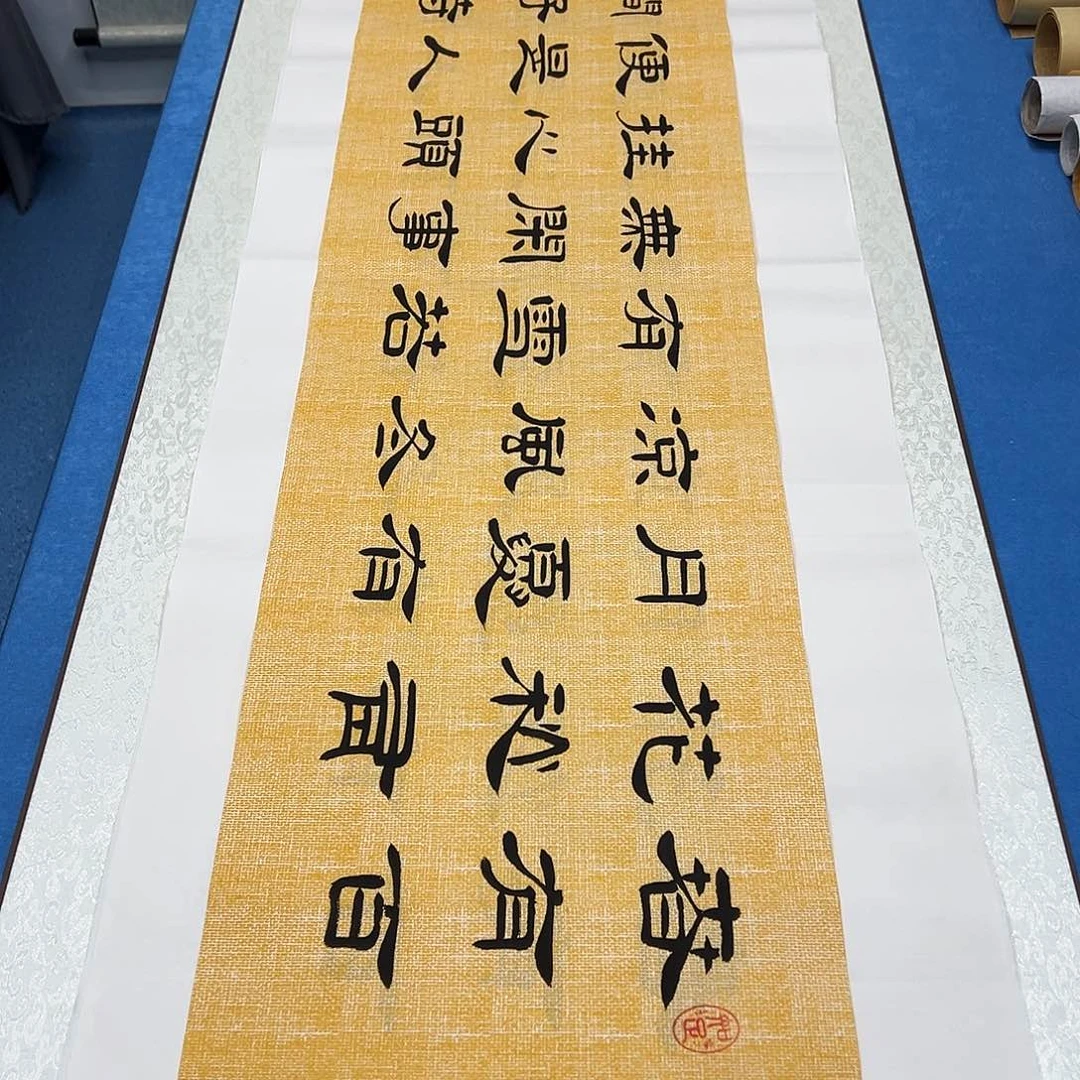 春有百
花秋有
月夏有
涼風冬
有雪若
無閑事
挂心頭
便是人
間好時